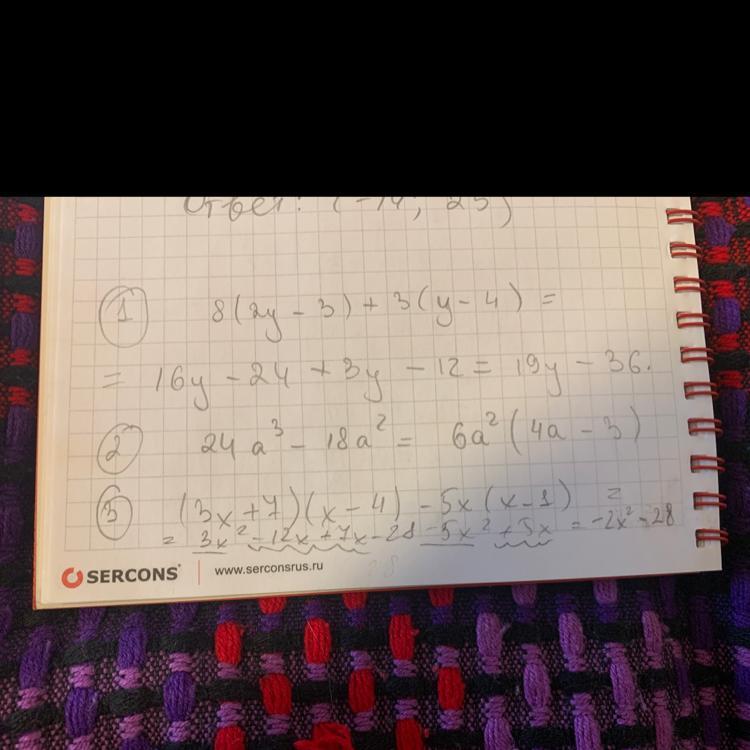 Ответ: (-14; 25)
① 8(2y - 3) + 3(y - 4) =
= 16y - 24 + 3y - 12 = 19y - 36.
② 24a³ - 18a² = 6a²(4a - 3)
③ (3x + 7)(x - 4) - 5x(x - 1) =
= 3x² - 12x + 7x - 28 - 5x² + 5x = -2x² - 28
SERCONS
www.serconsrus.ru